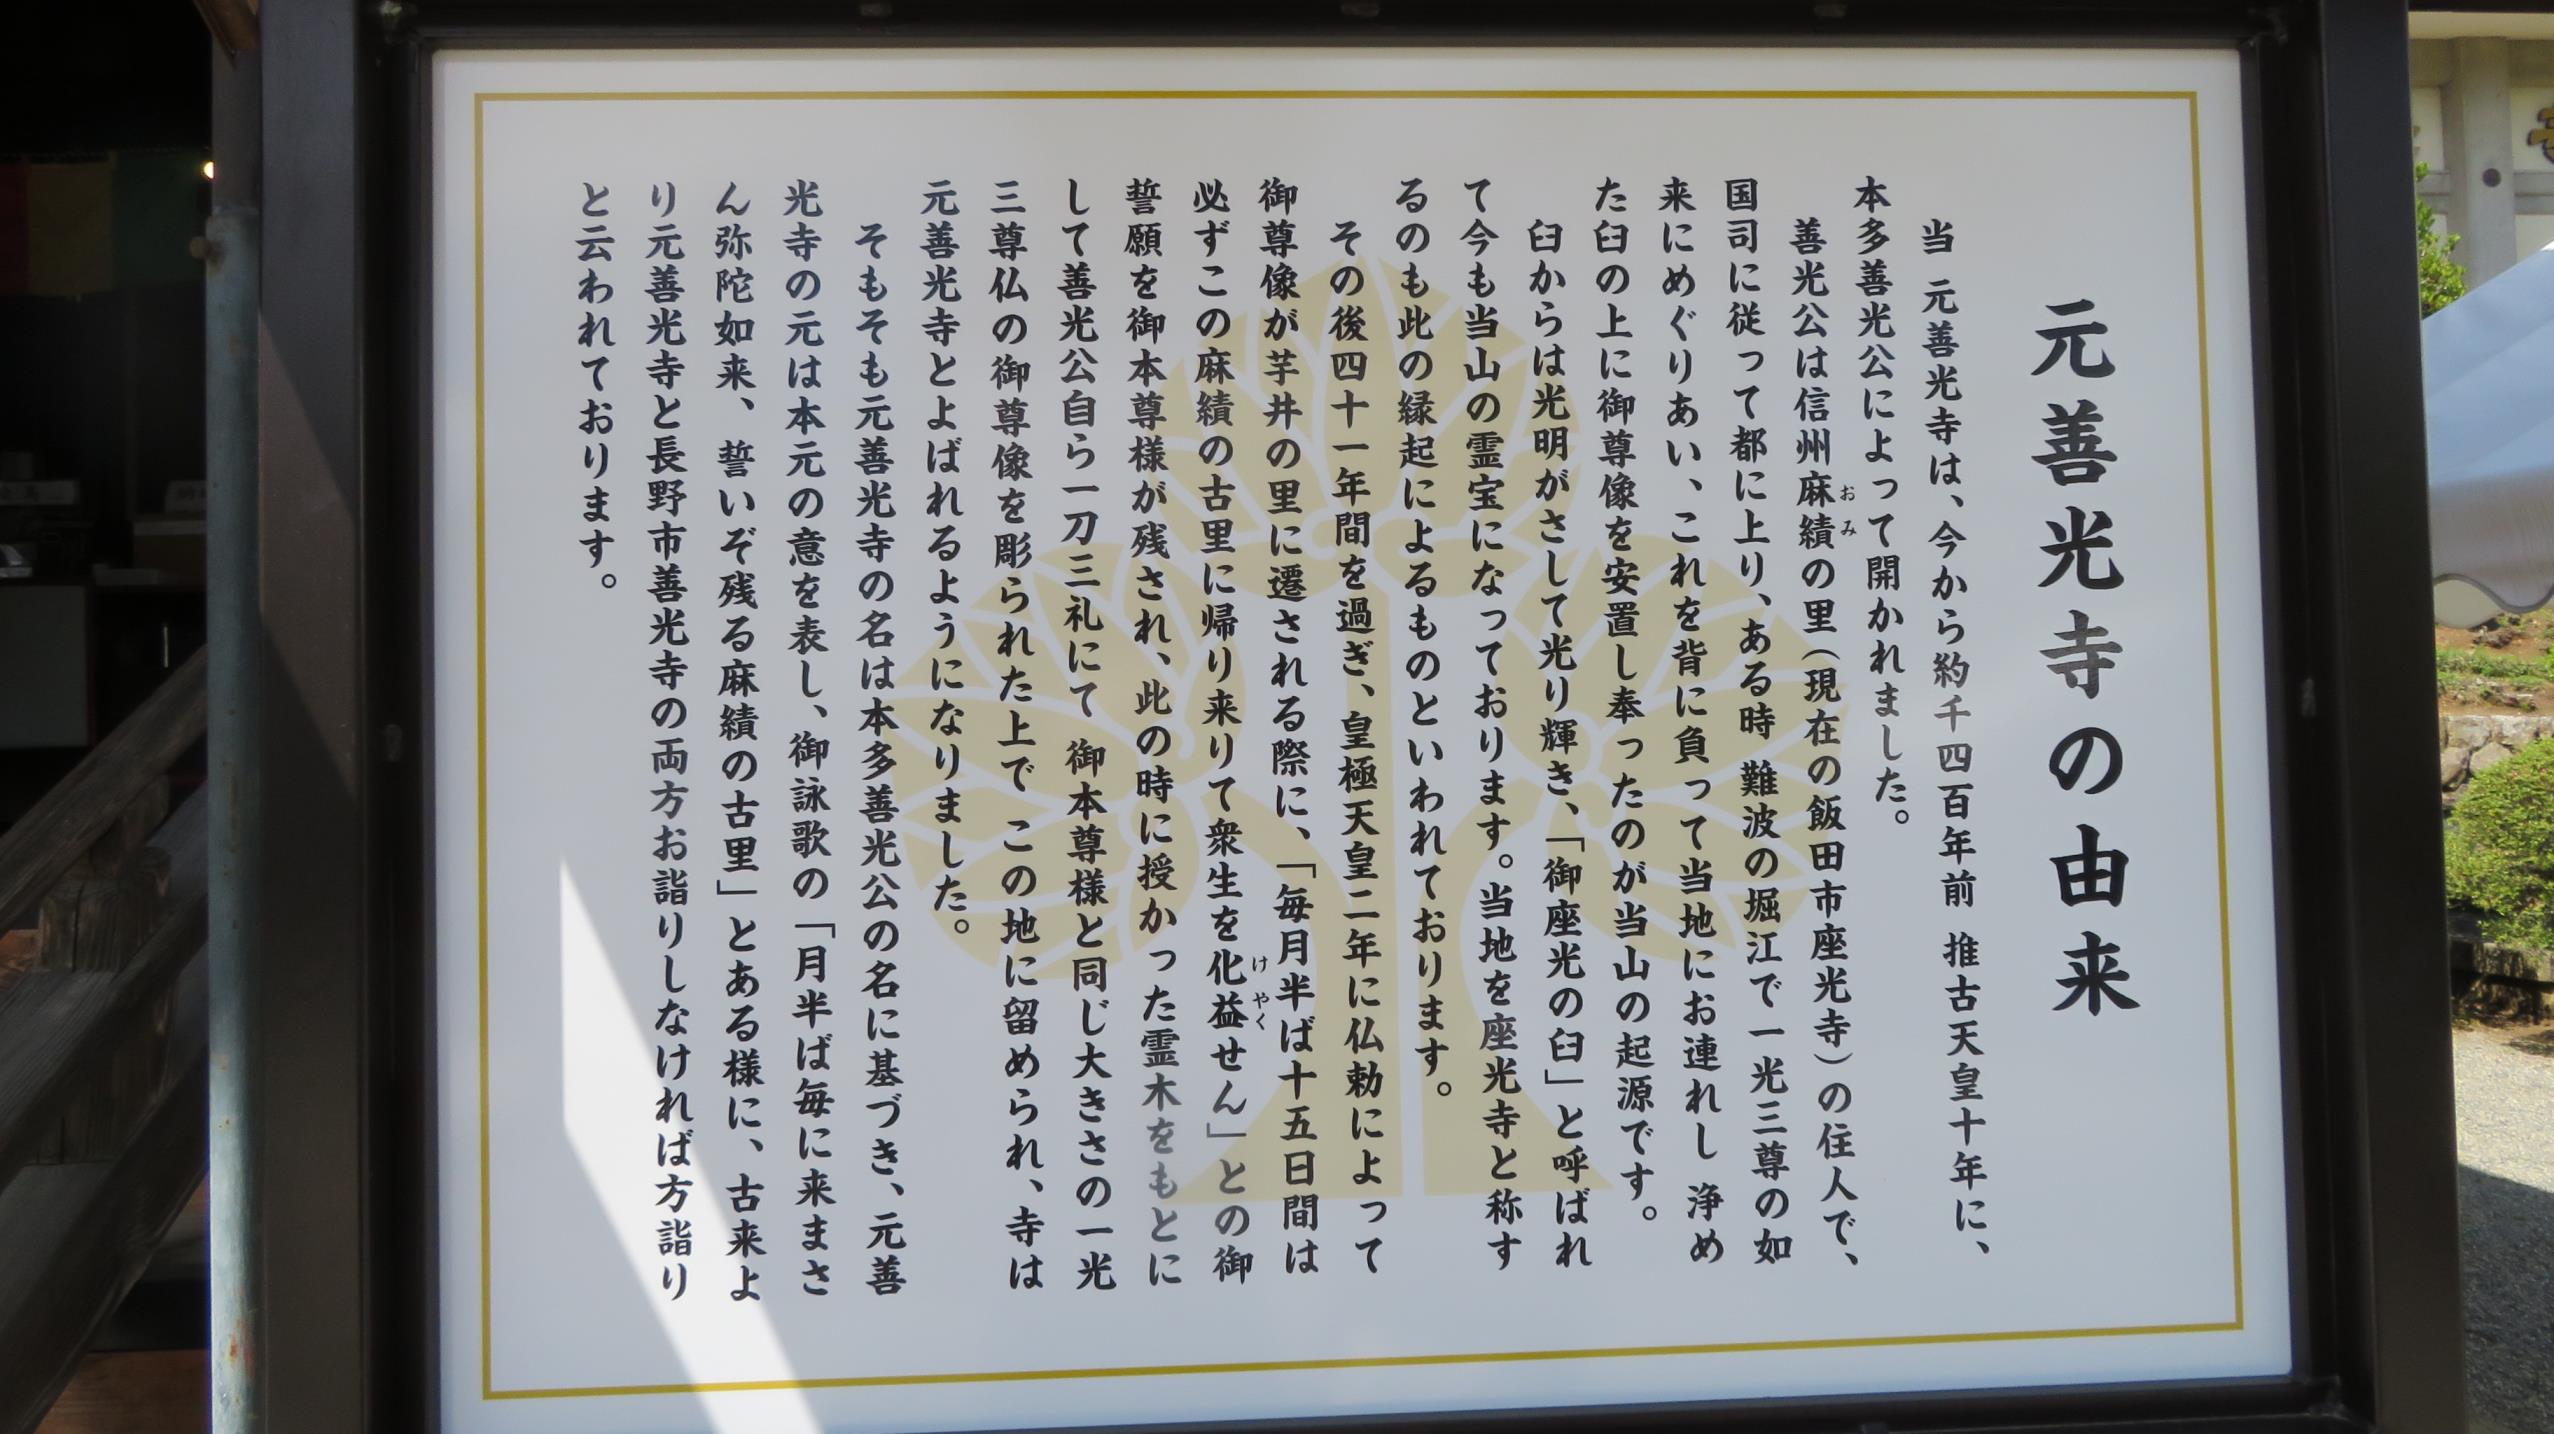 元善光寺の由来
当 元善光寺は、今から約千四百年前 推古天皇十年に、
本多善光公によって開かれました。
善光公は信州麻績の里(現在の飯田市座光寺)の住人で、
おみ
国司に従って都に上り、ある時 難波の堀江で一光三尊の如
来にめぐりあい、これを背に負って当地にお連れし 浄め
た臼の上に御尊像を安置し奉ったのが当山の起源です。
臼からは光明がさして光り輝き、「御座光の臼」と呼ばれ
て今も当山の霊宝になっております。当地を座光寺と称す
るのも此の縁起によるものといわれております。
その後四十一年間を過ぎ、皇極天皇二年に仏勅によって
御尊像が芋井の里に遷される際に、「毎月半ば十五日間は
必ずこの麻績の古里に帰り来りて衆生を化益せん」との御
けやく
誓願を御本尊様が残され、此の時に授かった霊木をもとに
して善光公自ら一刀三礼にて 御本尊様と同じ大きさの一光
三尊仏の御尊像を彫られた上で この地に留められ、寺は
元善光寺とよばれるようになりました。
そもそも元善光寺の名は本多善光公の名に基づき、元善
光寺の元は本元の意を表し、御詠歌の「月半ば毎に来まさ
ん弥陀如来、誓いぞ残る麻績の古里」とある様に、古来よ
り元善光寺と長野市善光寺の両方お詣りしなければ方詣り
と云われております。